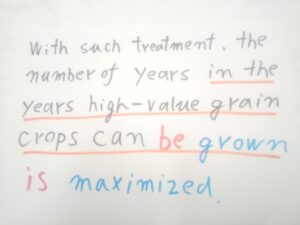 With such treatment, the
number of years in the
years high-value grain
crops can be grown
is maximized.